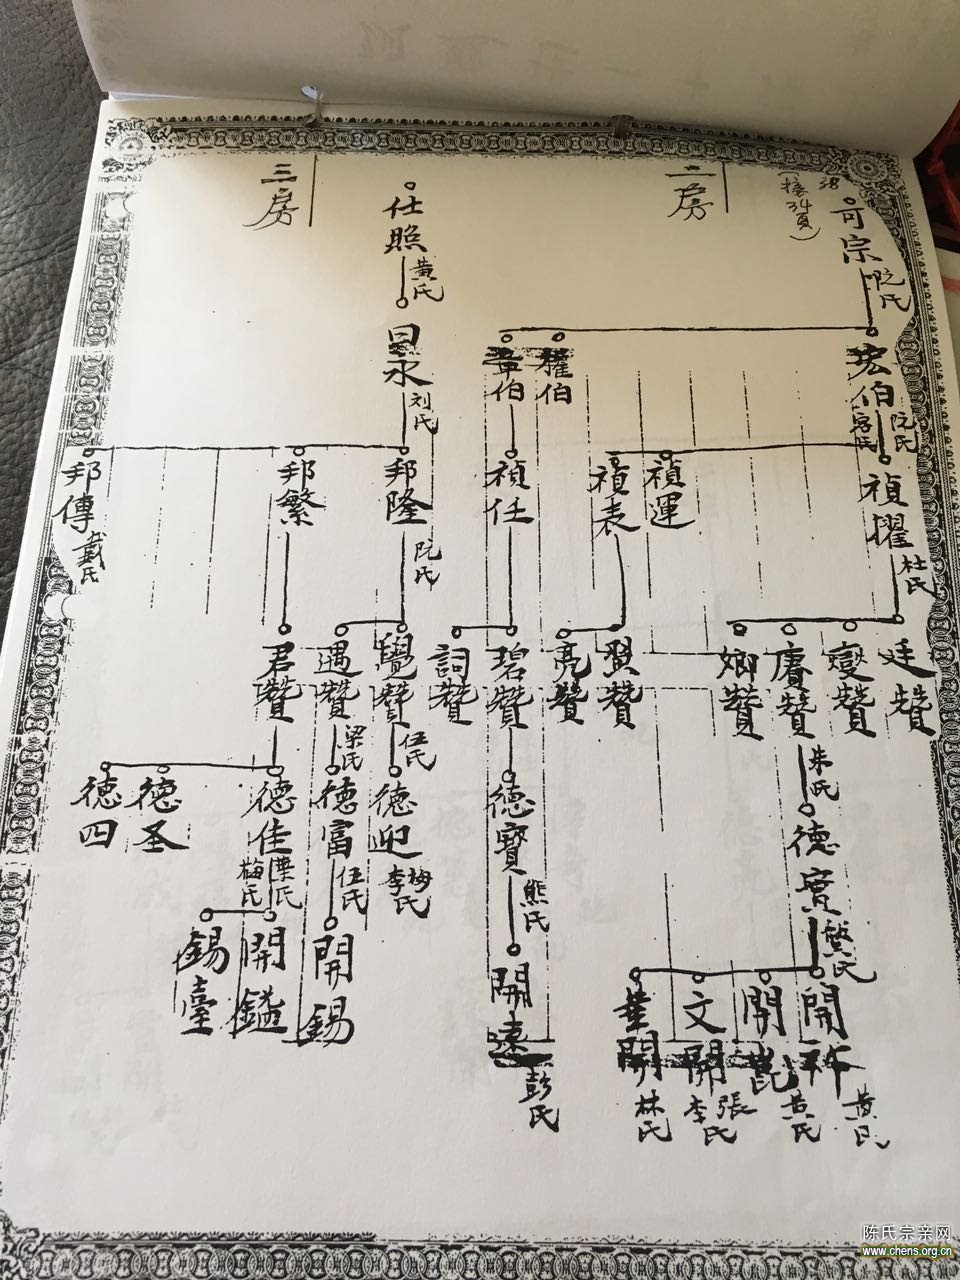 二房
(接34頁)
38
可宗
阮氏
宏伯
阮氏
權伯
章伯
禎擢
杜氏
禎運
禎表
禎任
廷贊
變贊
賡贊
朱氏
嫏贊
賢贊
亮贊
碧贊
詞贊
德實
熊氏
德寶
熊氏
開祚
黃氏
開崑
黃氏
文開
張氏
李氏
華開
林氏
開遠
彭氏
三房
仕照
黃氏
昌永
刘氏
邦隆
阮氏
邦繁
邦傳
戴氏
覺贊
伍氏
遇贊
梁氏
君贊
德迎
梅氏
李氏
德富
伍氏
德佳
葉氏
梅氏
德圣
德四
開錫
開鎰
錫臺
陈氏宗亲网
www.chens.org.cn